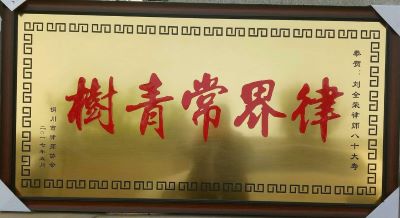 恭贺：刘全荣律师八十大寿
律界常青樹
铜川市律师协会
二〇一七年五月